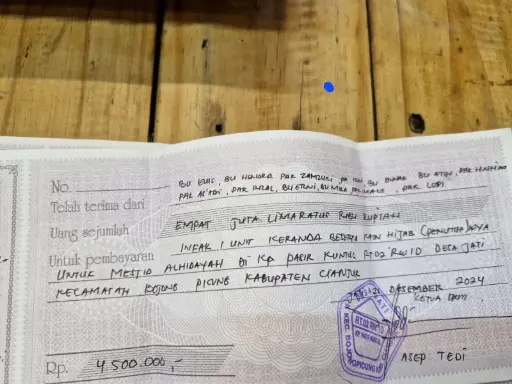 No.
BU ELIS, BU HENDRA PAK ZAMZURI, BU DINAR, BU ETIN, PAK
Telah terima dari
PAK HILAL, BU ERNI, BU MILA, PAK LODI.
Uang sejumlah EMPAT JUTA LIMARATUS RIBU RUPIAH
Untuk pembayaran INFAK 1 UNIT KERANDA BESERTA KAIN HIJAB (PENUTUP) NYA
UNTUK MESJID ALHIDAYAH DI KP PASIR KUNTUL RT02 RW 10 DESA JATI
KECAMATAN BOJONG PICUNG KABUPATEN CIANJUR
DESEMBER 2024
KETUA DKM
Rp. 4.500.000,-
ASEP TEDI